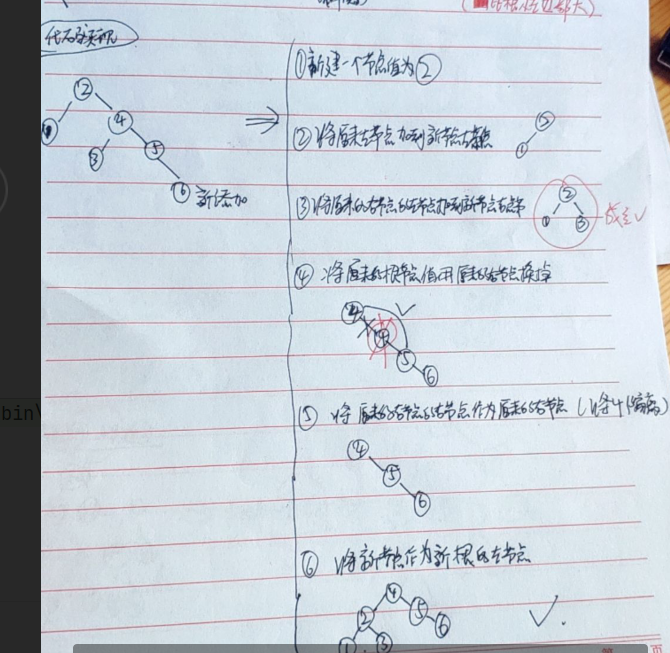 代码实现
①新建一个节点值为②
②将原来左节点加到新节点左节点
③将原来的右节点的左节点加到新节点右节点
④将原来的根节点值用原来的右节点换掉
⑤将原来的右节点的右节点作为原来的右节点(将4
⑥将新节点作为新根的左节点
2
4
3
5
6 新添加
2
1
2
1
3
4
5
6
4
5
6
4
2
5
6
1
3
bin\